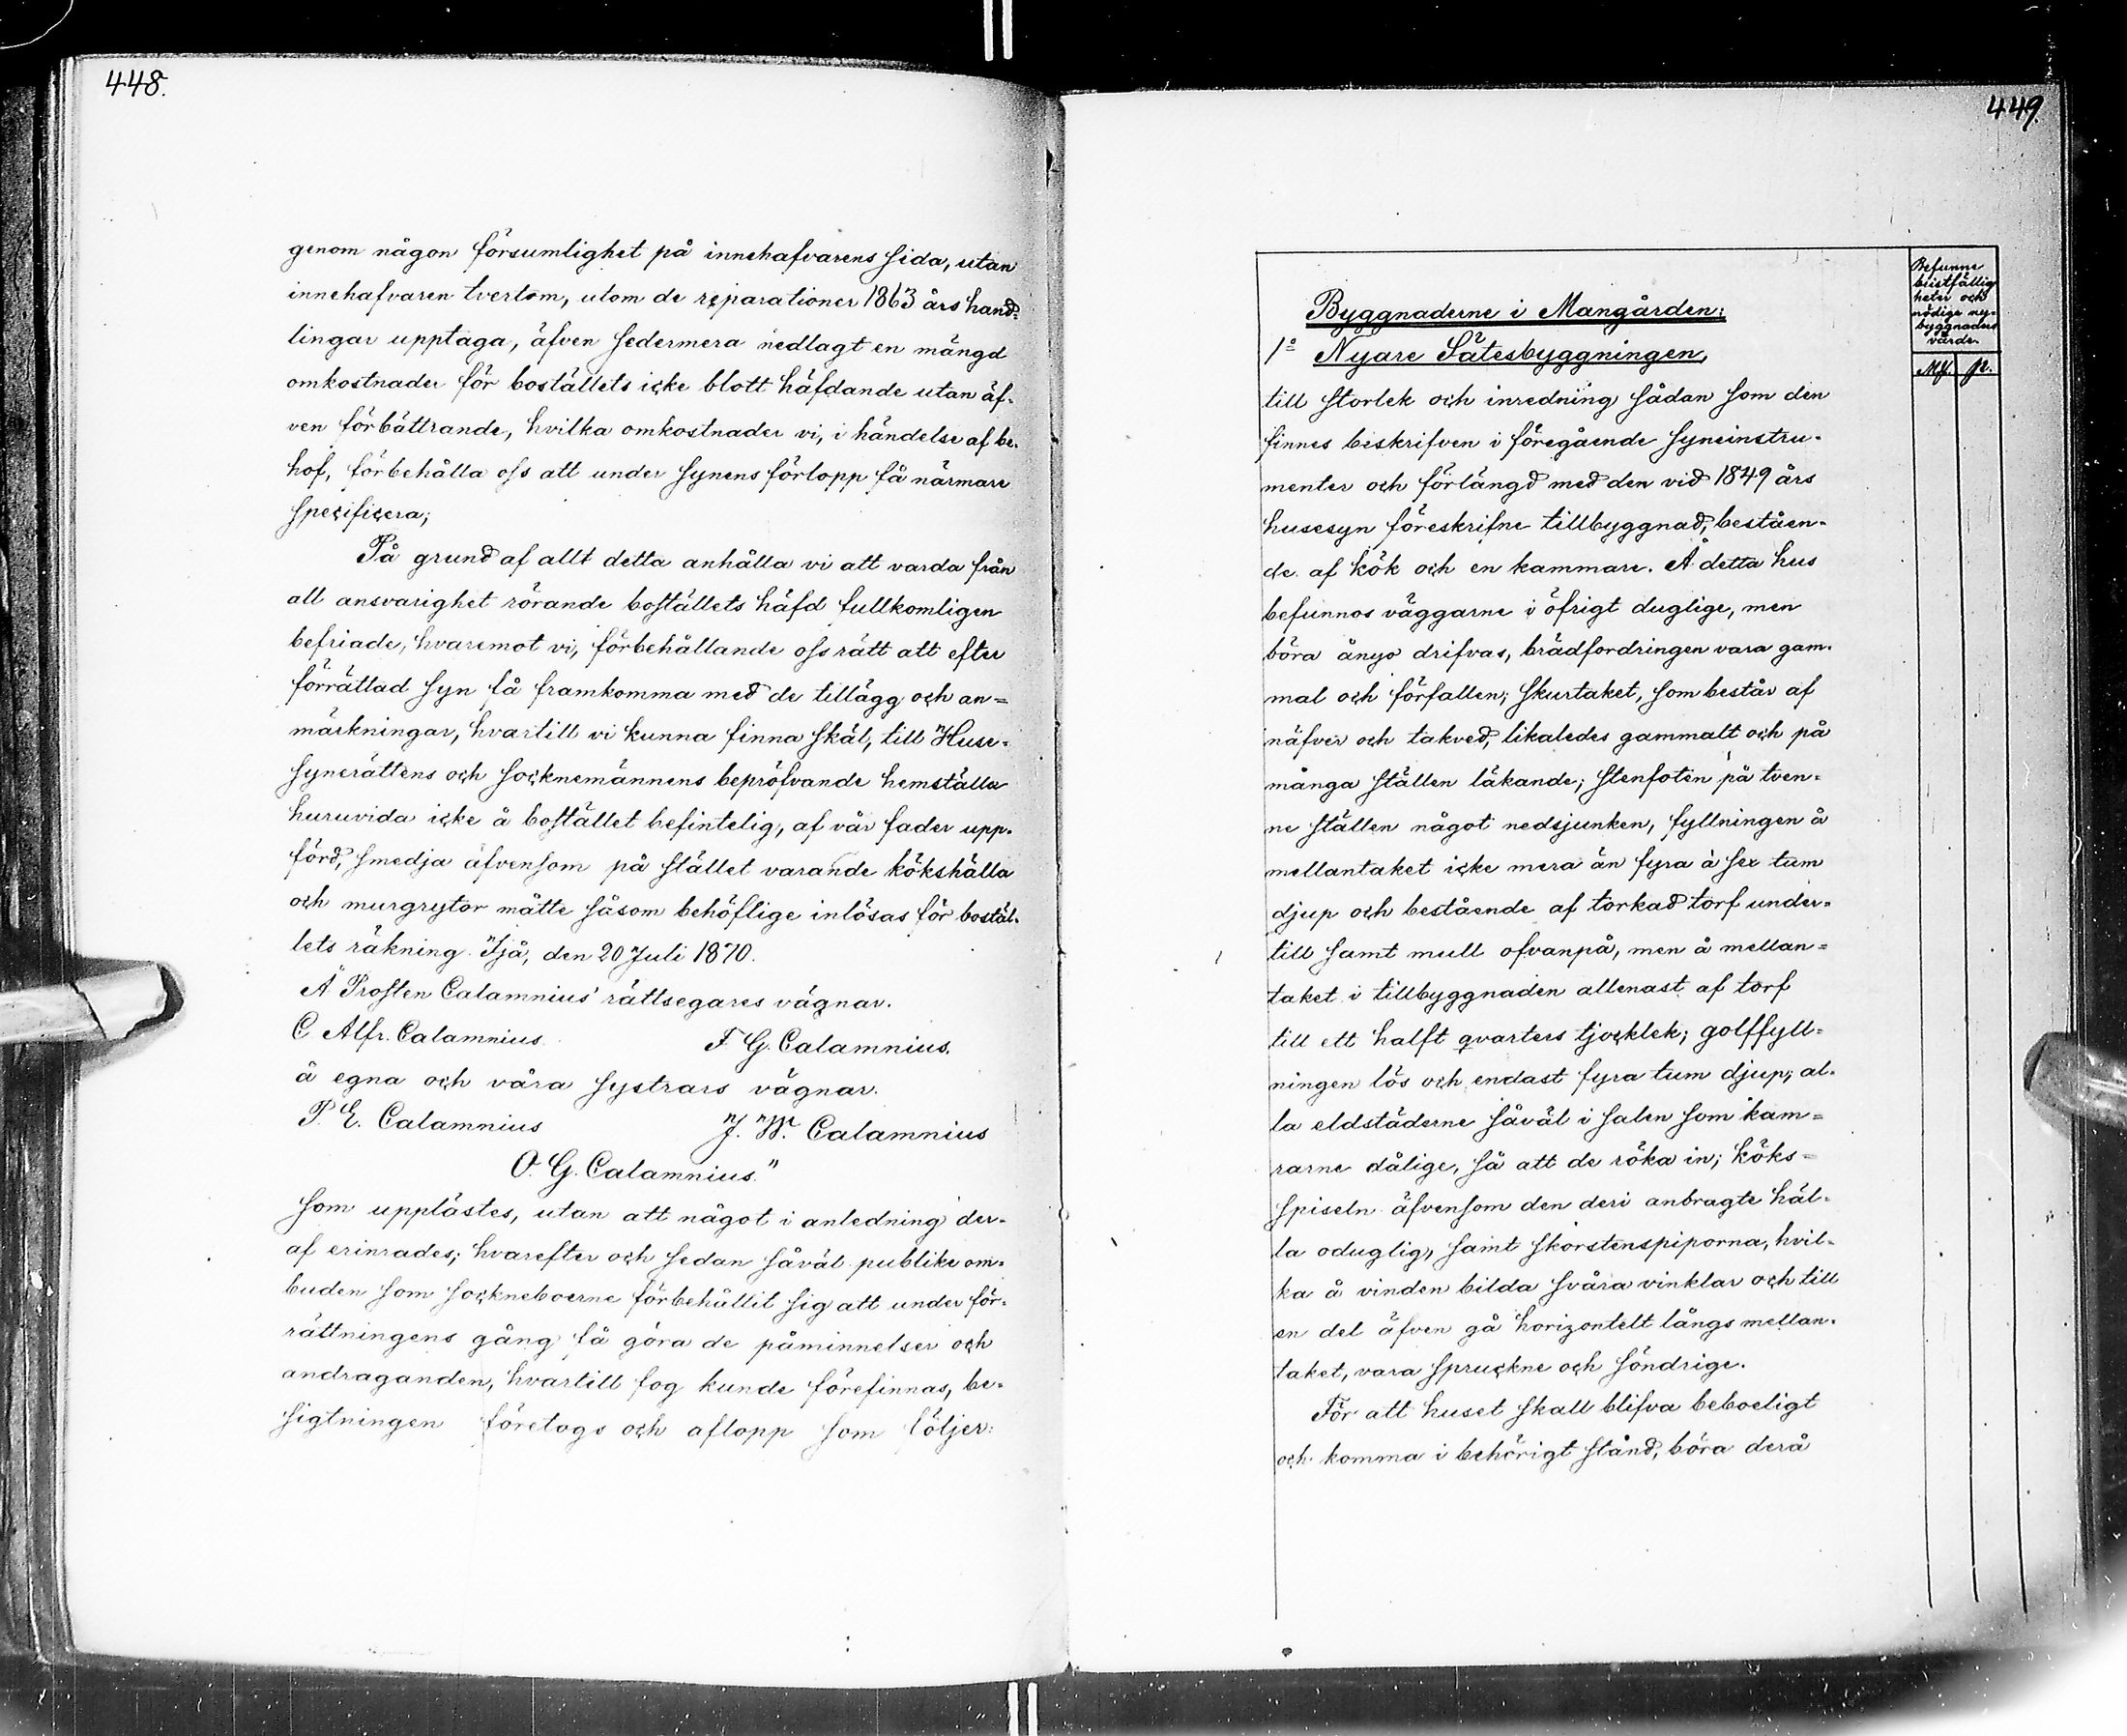 448.
genom någon försumlighet på innehafvarens sida, utan
innehafvaren tvertom, utom de reparationer 1863 års hand-
lingar upptaga, äfven sedermera nedlagt en mängd
omkostnader för boställets icke blott häfdande utan äf-
ven förbättrande, hvilka omkostnader vi, i händelse af be-
hof, förbehålla oss att under synens förlopp få närmare
specificera;
På grund af allt detta anhålla vi att varda från
all ansvarighet rörande boställets häfd fullkomligen
befriade, hvaremot vi, förbehållande oss rätt att efter
förrättad syn få framkomma med de tillägg och an=
märkningar, hvartill vi kunna finna skäl, till Huse-
synerättens och socknemännens bepröfvande hemställa
huruvida icke å bostället befintelig, af vår fader upp-
förd, smedja äfvensom på stället varande kökshälla
och murgrytor måtte såsom behöflige inlösas för bostäl-
lets räkning. Ijå, den 20 Juli 1870.
Å Prosten Calamnius' rättsegares vägnar.
C Alfr. Calamnius. F G. Calamnius.
å egna och våra systrars vägnar.
P. E. Calamnius J. W. Calamnius
O. G. Calamnius."
som upplästes, utan att något i anledning der-
af erinrades; hvarefter och sedan såväl publike om-
buden som sockneboerne förbehållit sig att under för-
rättningens gång få göra de påminnelser och
andraganden, hvartill fog kunde förefinnas, be-
sigtningen företogs och aflopp som följer:
449.
Befunne
bristfällig
heter och
nödige ny-
byggnaders
värde.
Mk. p.
Byggnaderne i Mangården:
1o Nyare Sätesbyggningen,
till storlek och inredning sådan som den
finnes beskrifven i föregående syneinstru-
menter och förlängd med den vid 1849 års
husesyn föreskrifne tillbyggnad, beståen-
de af kök och en kammare. Å detta hus
befunnos väggarne i öfrigt duglige, men
böra ånyo drifvas, brädfordringen vara gam-
mal och förfallen; skurtaket, som består af
näfver och takved, likaledes gammalt och på
många ställen läkande; stenfoten på tven-
ne ställen något nedsjunken, fyllningen å
mellantaket icke mera än fyra à sex tum
djup och bestående af torkad torf under-
till samt mull ofvanpå, men å mellan=
taket i tillbyggnaden allenast af torf
till ett halft qvarters tjocklek; golffyll-
ningen lös och endast fyra tum djup; al-
la eldstäderne såväl i salen som kam=
rarne dålige, så att de röka in; köks=
spiseln äfvensom den deri anbragte häl-
la oduglig, samt skorstenspiporna, hvil-
ka å vinden bilda svåra vinklar och till
en del äfven gå horizontelt långs mellan-
taket, vara spruckne och söndrige.
För att huset skall blifva beboeligt
och komma i behörigt stånd, böra derå